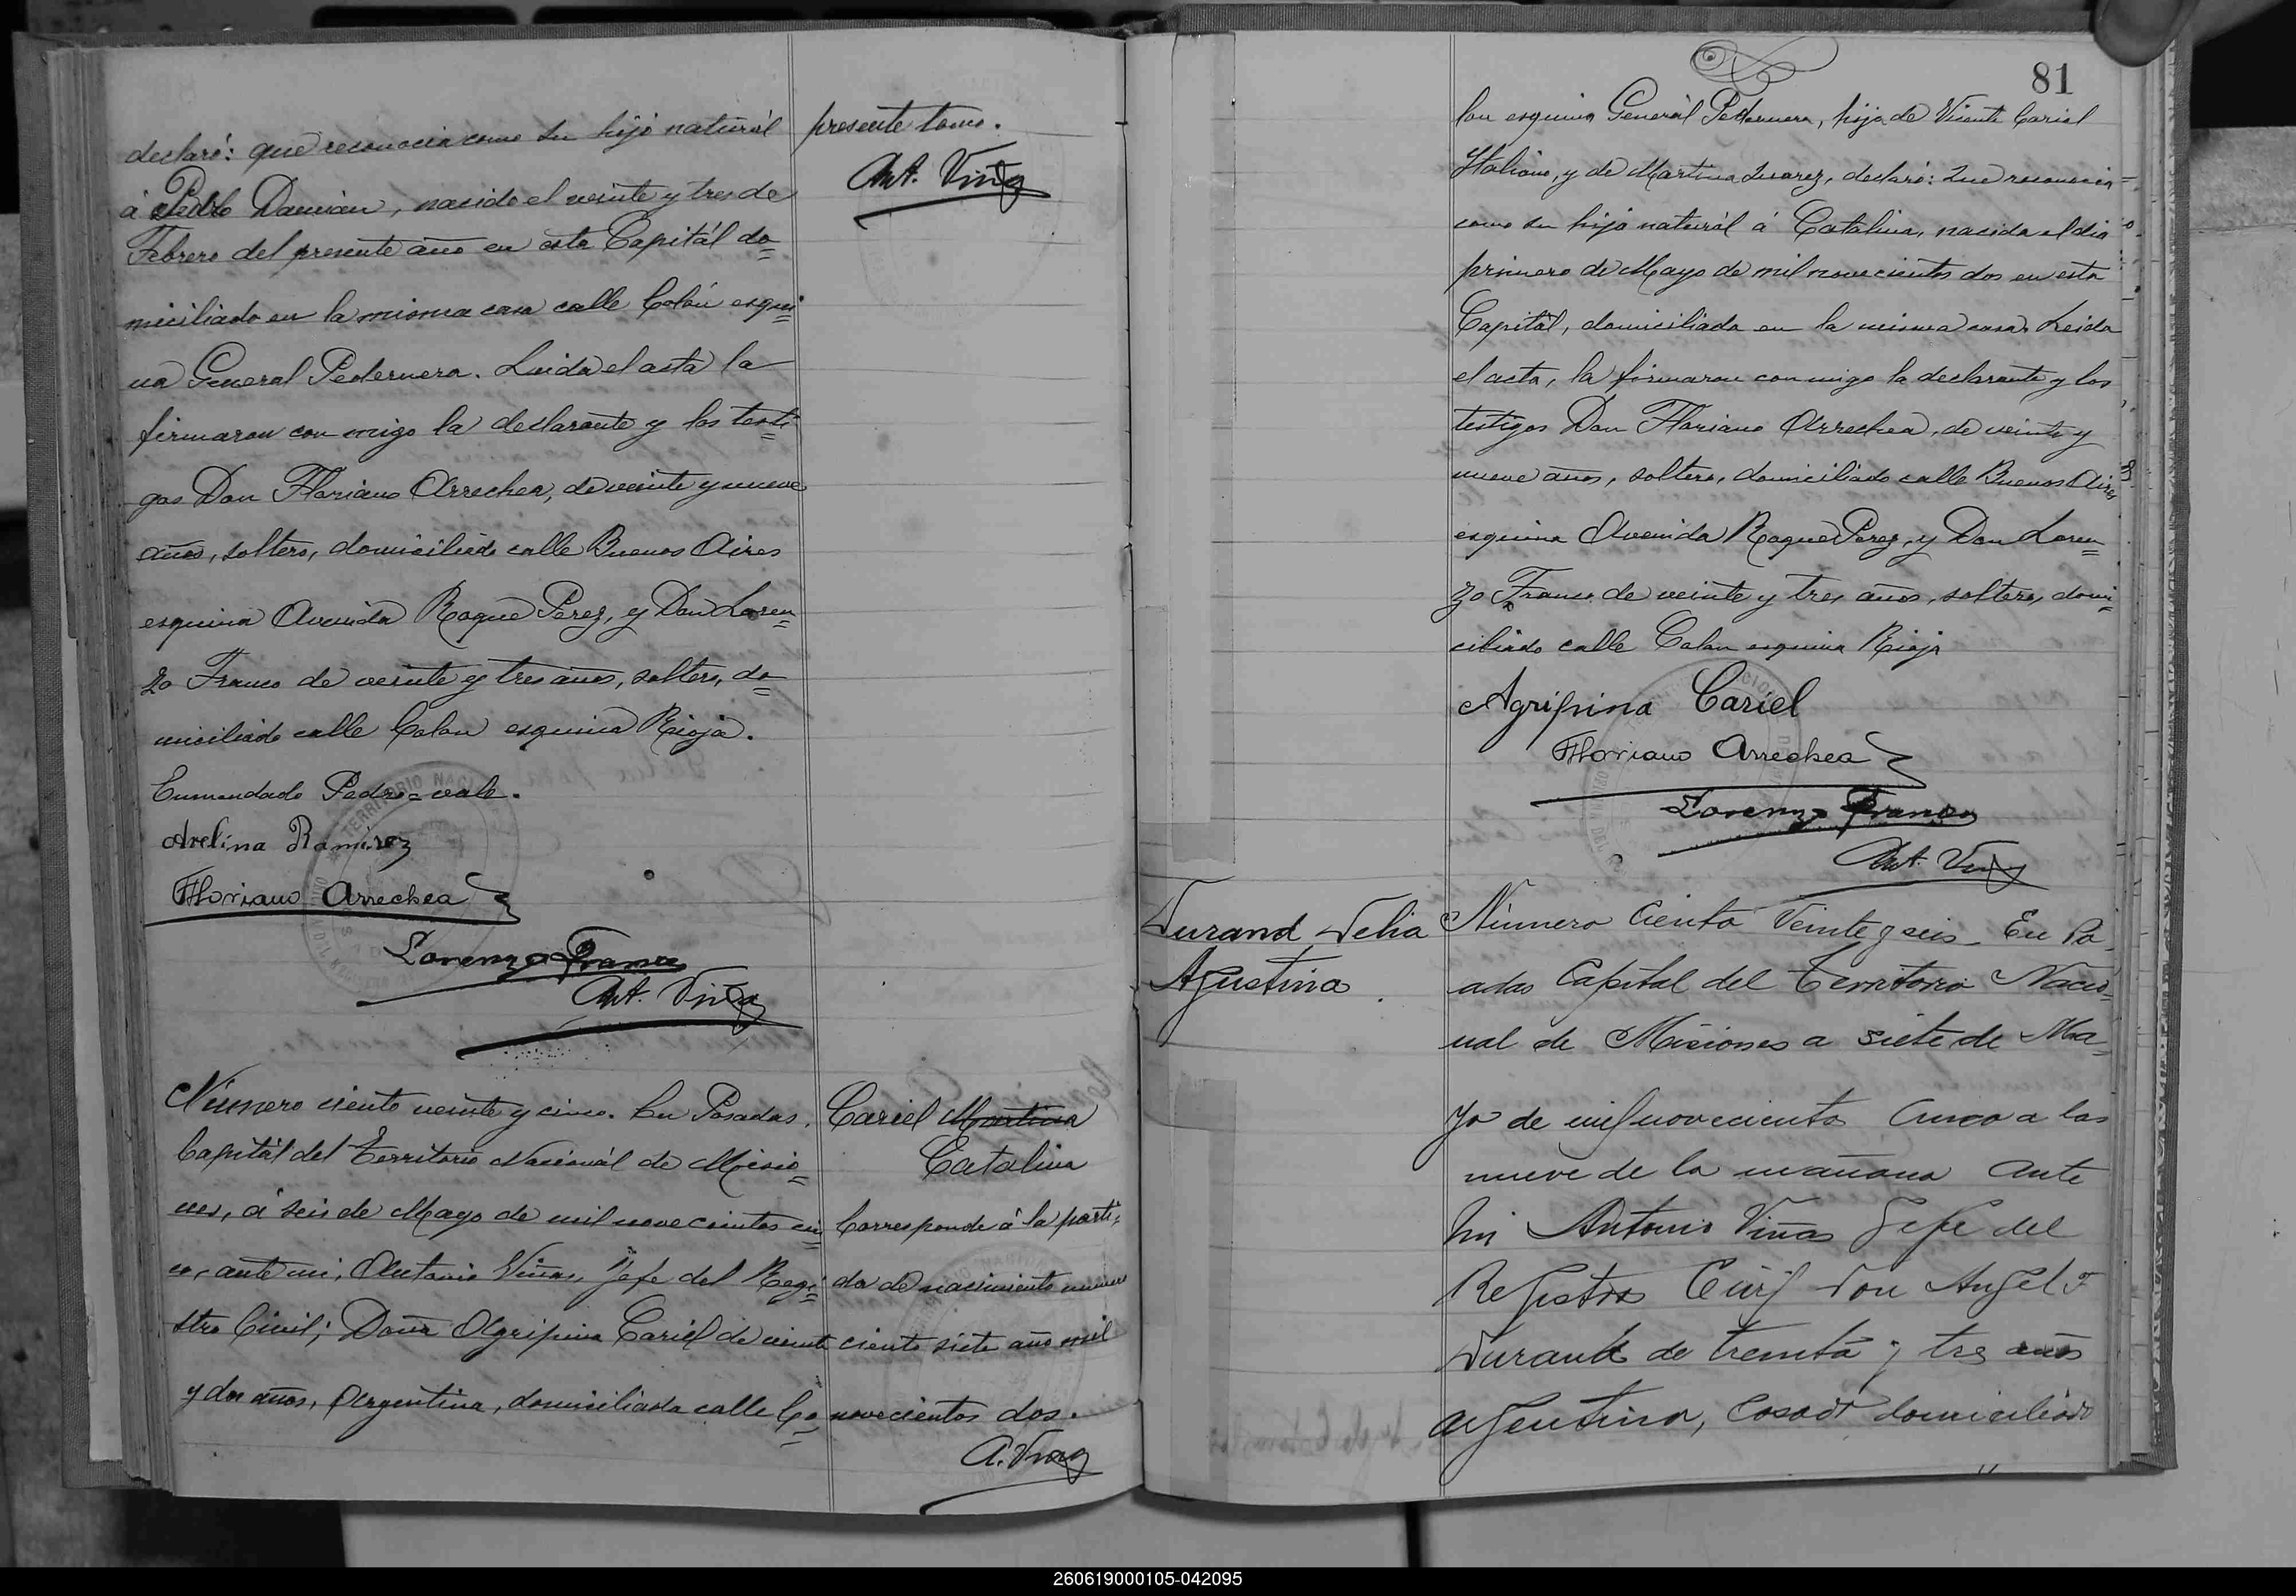 declaró: que reconocia como su hijo naturál
á Pedro Damian, nacido el veinte y tres de
Febrero del presente año en esta Capitál do=
miciliado en la misma casa calle Colón esqui=
na General Pedernera. Leida el acta la
firmaron con migo la declarante y los testi=
gos Don Floriano Arrechea, de veinte y nueve
años, soltero, domiciliado calle Buenos Aires
esquina Avenida Roque Perez, y Don Loren=
zo Franco de veinte y tres años, soltero, do=
miciliado calle Colon esquina Rioja.
Enmendado Pedro=vale.
Avelina Ramirez
Floriano Arrechea
Lorenzo Franco
Ant. Viña
presente tomo.
Ant. Viña
Número ciento veinte y cinco. En Posadas,
Capitál del Territorio Nacionál de Misio=
nes, á seis de Mayo de mil novecientos cin=
co, ante mi, Antonio Viñas, Jefe del Regi=
stro Civil; Doña Agripina Cariel de veinte
y dos años, Argentina, domiciliada calle Co=
Cariel Martina
Catalina
Corresponde á la parti=
da de nacimiento numero
ciento siete año mil
novecientos dos.
A. Viña
81
lon esquina Generál Pedernera, hija de Vicente Cariel
Italiano, y de Martina Suarez, declaró: Que reconocia=
como su hija naturál á Catalina, nacida el dia
primero de Mayo de mil novecientos dos en esta
Capitál, domiciliada en la misma casa. Leida
el acta, la firmaron con migo la declarante y los
testigos Don Floriano Arrechea, de veinte y
nueve años, soltero, domiciliado calle Buenos Aires
esquina Avenida Roque Perez, y Don Loren=
zo Franco de veinte y tres años, soltero, domi=
ciliado calle Colon esquina Rioja
Agripina Cariel
Floriano Arrechea
Lorenzo Franco
Ant. Viña
Durand Delia
Agustina
Número Ciento Veinte y seis_ En Po
sadas Capital del Territorio Nacio=
nal de Misiones a siete de Ma=
yo de mil novecientos Cinco a las
nueve de la mañana ante
mi Antonio Viñas Jefe del
Registro Civil Don Angel F
Durand de treinta y tres años
argentino, Casado domiciliado
260619000105-042095